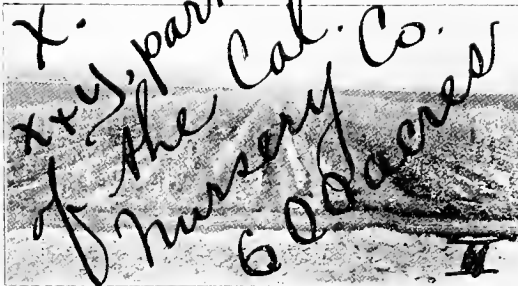 X.
x+y, par
of the Cal. Co.
Nursery
600 acres
II